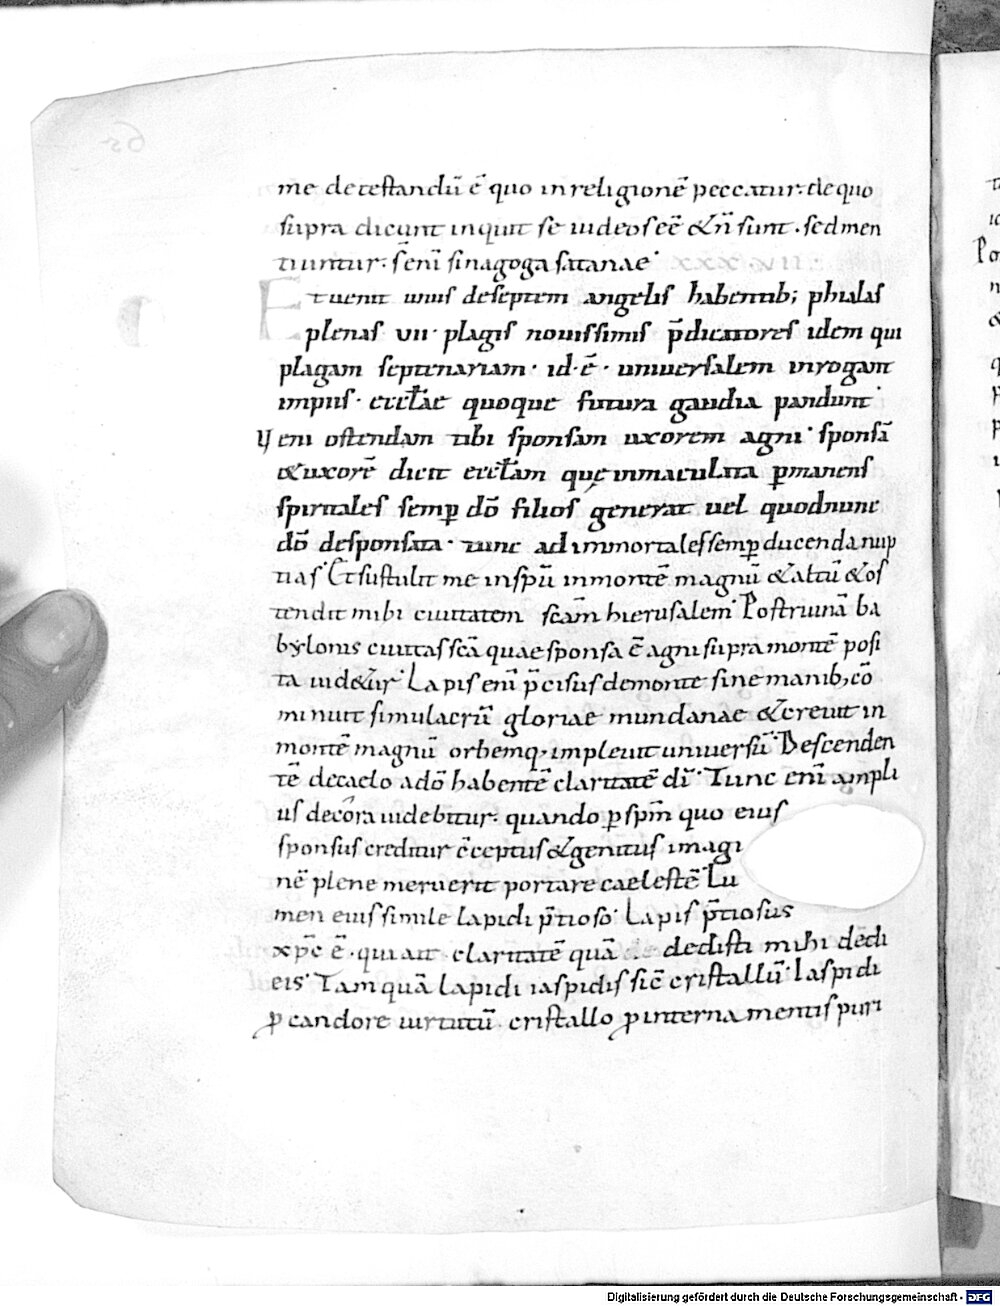 me detestandū ē quo in religionē peccatur. de quo
supra dicunt inquit se iudeos eē &n̄ sunt. sed men
tiuntur. s̄ enī sinagoga satanae.
Et uenit unus de septem angelis habentib; phialas
plenas VII. plagis nouissimis p̄dicatores idem qui
plagam septenariam. id. ē. uniuersalem inrogant
impiis. eccłae quoque futura gaudia pandunt.
Veni ostendam tibi sponsam uxorem agni. sponsā
& uxorē dicit eccłam quę inmaculata ꝑmanens
spiritales semꝑ dō filios generat uel quod nunc
dō desponsata. tunc ad immortales semꝑ ducenda nup
tias. Et sustulit me in spū in montē magnū & altū & os
tendit mihi ciuitatem scām hierusalem. Post ruinā ba
bylonis ciuitas scā quae sponsa ē agni supra montē posi
ta uid&ur. Lapis enī p̄cisus de monte sine manib; cō
minuit simulacrū gloriae mundanae & creuit in
montē magnū orbemq; impleuit uniuersū. Descenden
tē de caelo a dō habentē claritatē dī. Tunc enī ampli
us decora uidebitur. quando ꝑ spm̄ quo eius
sponsus creditur cc̄eptus & genitus imagi
nē plene meruerit portare caelestē. Lu
men eius simile lapidi p̄tioso. Lapis p̄tiosus
xp̄c ē. qui ait claritatē quā dedisti mihi dedi
eis. Tamquā lapidi iaspidis sic̄ cristallū. Iaspidi
ꝑ candore uirtutū. cristallo ꝑ interna mentis puri
Digitalisierung gefördert durch die Deutsche Forschungsgemeinschaft - DFG